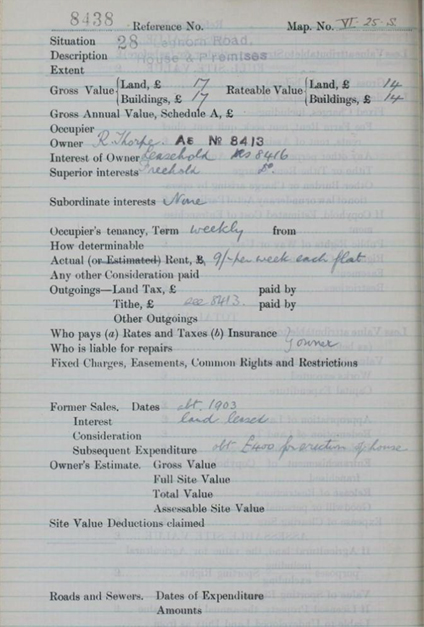 8438
Reference No. Map. No. VI. 25. S
Situation 28 Road.
Description House & Premises
Extent
Gross Value {Land, £ 17 Rateable Value {Land, £ 14
{Buildings, £ 17 {Buildings, £ 14
Gross Annual Value, Schedule A, £
Occupier
Owner R. Thorpe. AS No 8413
Interest of Owner Leasehold as 8416
Superior interests Freehold do.
Subordinate interests None
Occupier's tenancy, Term weekly from
How determinable
Actual (or Estimated) Rent, £, 9/- per week each flat
Any other Consideration paid
Outgoings—Land Tax, £ paid by
Tithe, £ see 8413. paid by
Other Outgoings
Who pays (a) Rates and Taxes (b) Insurance
Who is liable for repairs } owner
Fixed Charges, Easements, Common Rights and Restrictions
Former Sales. Dates abt. 1903
Interest land leased
Consideration
Subsequent Expenditure abt £400 for erection of house
Owner's Estimate. Gross Value
Full Site Value
Total Value
Assessable Site Value
Site Value Deductions claimed
Roads and Sewers. Dates of Expenditure
Amounts